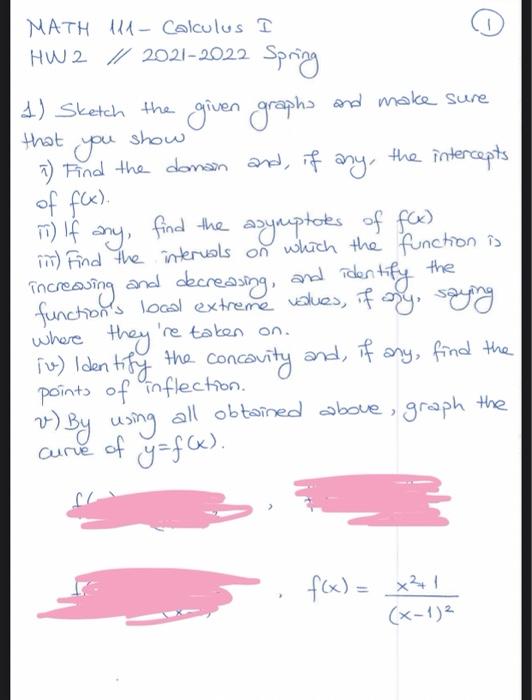 1
MATH 111 - Calculus I
HW2 // 2021-2022 Spring
1) Sketch the given graphs and make sure
that you show
i) Find the domain and, if any, the intercepts
of f(x).
ii) If any, find the asymptotes of f(x)
iii) Find the intervals on which the function is
increasing and decreasing, and identify the
function's local extreme values, if any, saying
where they're taken on.
iv) Identify the concavity and, if any, find the
points of inflection.
v) By using all obtained above, graph the
curve of y=f(x).
, f(x) = x²+1
(x-1)²